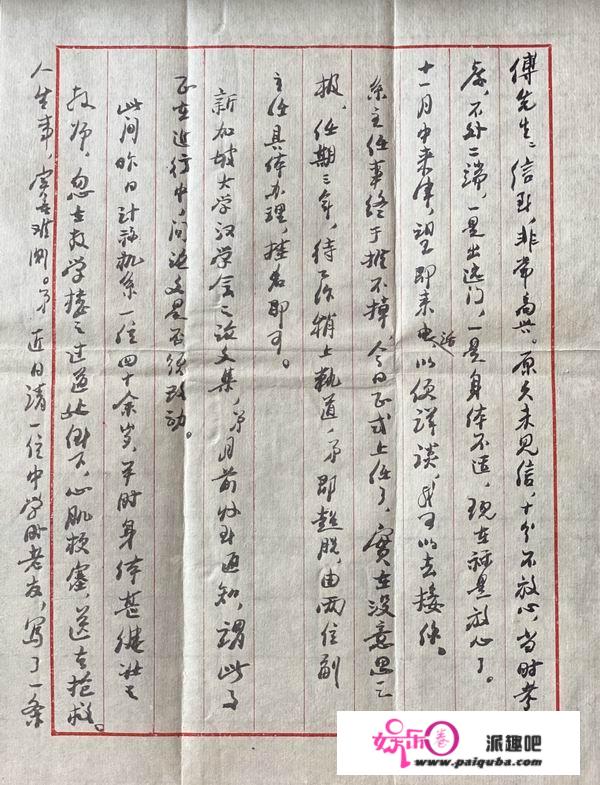 傅先生：信到，非常高兴。原久未见信，十分不放心，当时考
虑，不外二端，一是出远门，一是身体不适，现在算是放心了。
十一月中来津，望即来电话以便详谈，我可以去接你。
系主任事终于推不掉，今日正式上任了，实在没意思之
极，任期三年，待工作稍上轨道，弟即超脱，由两位副
主任具体办理，挂名即可。
新加坡大学汉学会之论文集，弟月前收到通知，谓此事
正在进行中，问论文是否须改动。
此间昨日计算机系一位四十余岁，平时身体甚健壮之
教师，忽在教学楼之过道处倒下，心肌梗塞，送去抢救。
人生事，实在难测。弟近日请一位中学时老友，写了一条
娱乐卷 派趣吧
www.paiquba.com